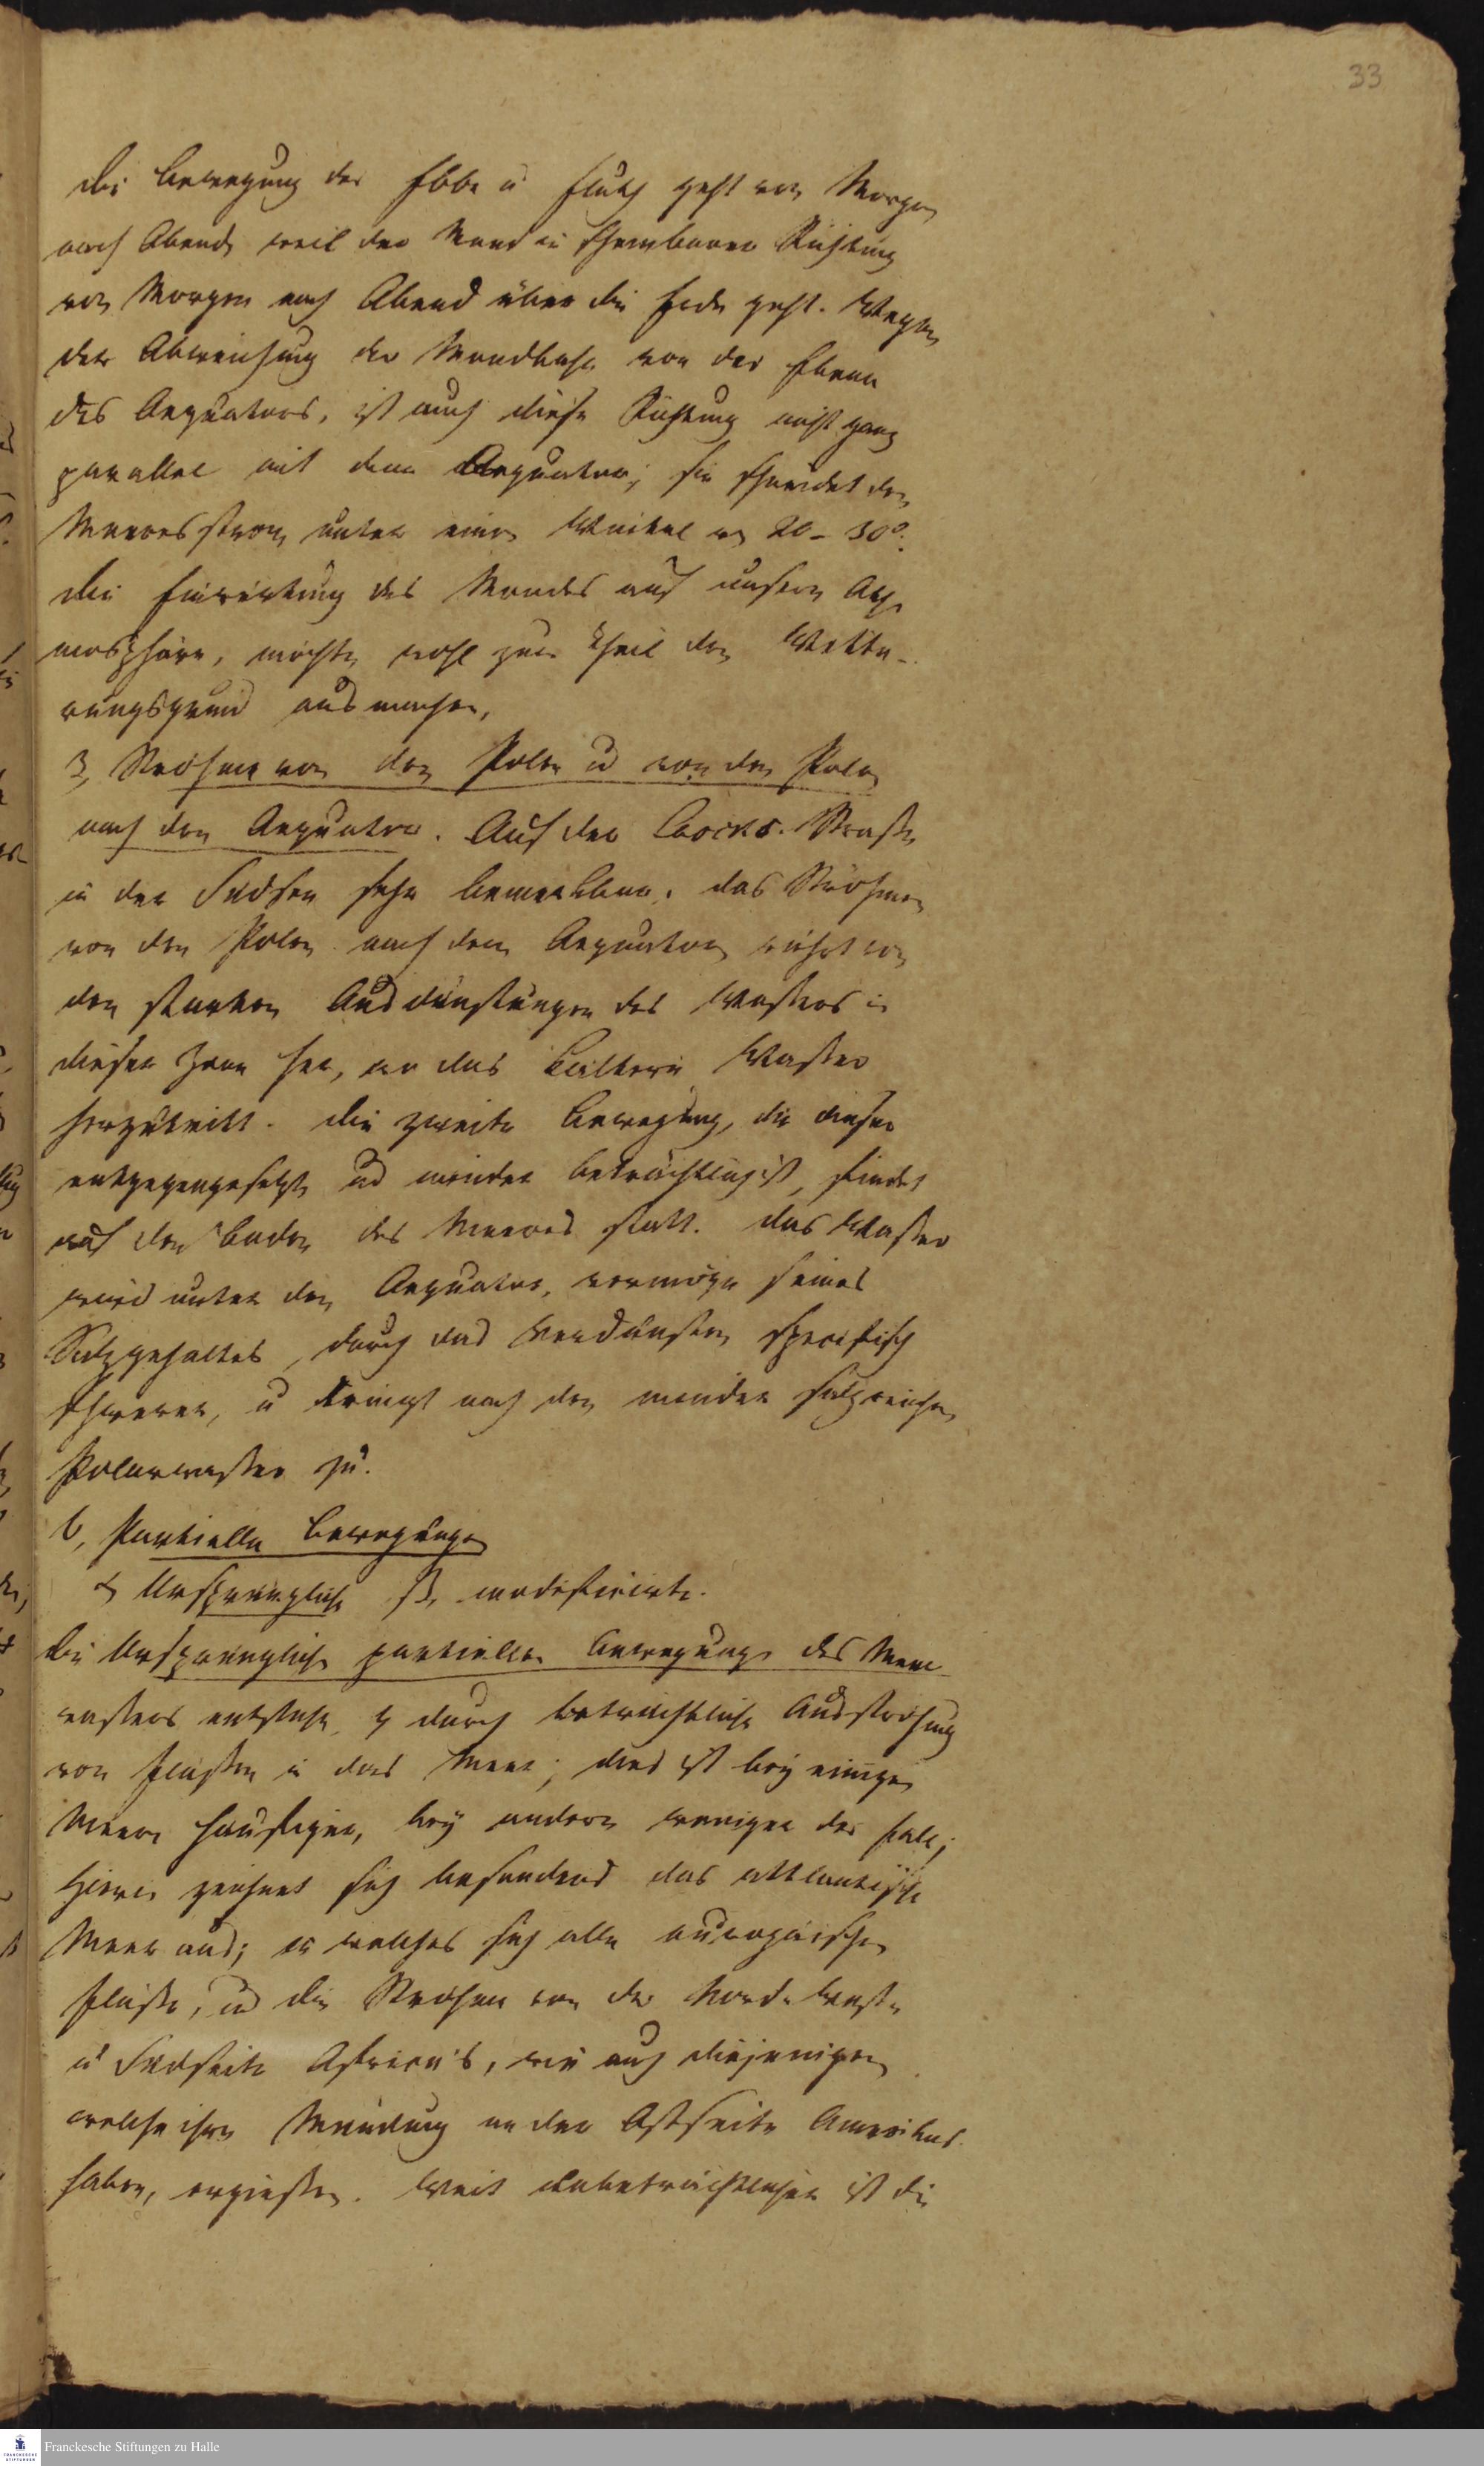 33
die Bewegung der Ebbe u Fluth geht von Morgen
nach Abend, weil der Mond in scheinbarer Richtung
von Morgen nach Abend über die Erde geht. Wegen
der Abweichung der Mondbahn von der Ebene
des Aequators, ist auch diese Richtung nicht ganz
parallel mit dem Aequator; sie schneidet den
Meeresstrom unter einen Winkel von 20-30°.
die Einwirkung des Mondes auf unsere At
mosphäre, möchte wohl zum Theil den Witte-
rungsgrund ausmachen,
3, Ströhme von den Polen u von den Polen
nach den Aequator. Auf der Coocks. Straße
in der Südsee sehr bemerkbar. das Ströhmen
von den Polen nach dem Aequator rührt von
den starken Ausdünstungen des Wassers in
dieser Zone her, wo das kältere Wasser
herzutritt. die zweite Bewegung, die dieser
entgegengesetzt und minder beträchtlich ist, findet
auf den Boden des Meeres statt. das Wasser
wird unter den Aequator, vermöge seines
Salzgehaltes, durch das Verdünsten specifisch
schwerer, u dringt nach den minder salzreichen
Polarwasser zu.
b, Partielle Bewegungen
α Ursprüngliche β, modificirte.
die Ursprüngliche partiellen Bewegunge des Meer
wassers entstehn durch beträchtliche Ausströhmung
von Flüssen in das Meer; dies ist bey einigen
Meeren häufiger, bey andern weniger der Fall;
Hierin zeichnet sich besonders das attlantische
Meer aus; in welches sich alle europäischen
Flüsse, und die Ströhme von der Nord- West-
u Südseite Africa's, wie auch diejenigen
welche ihre Mündung an der Ostseite Amerikas
haben, ergiessen. Weit unbeträchtlicher ist die
Franckesche Stiftungen zu Halle